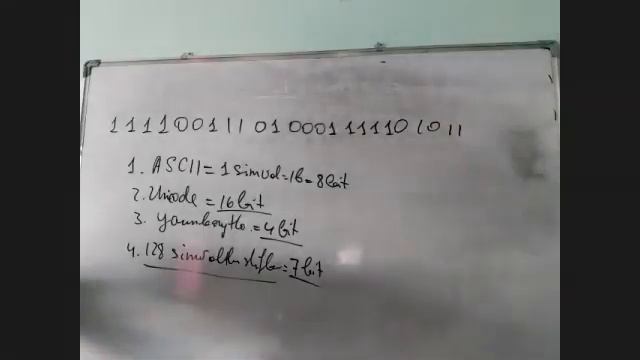 111100111010001111101011
1. ASCII = 1 simvol = 1b = 8 bit
2. Unicode = 16 bit
3. = 4 bit
4. 128 = 7 bit